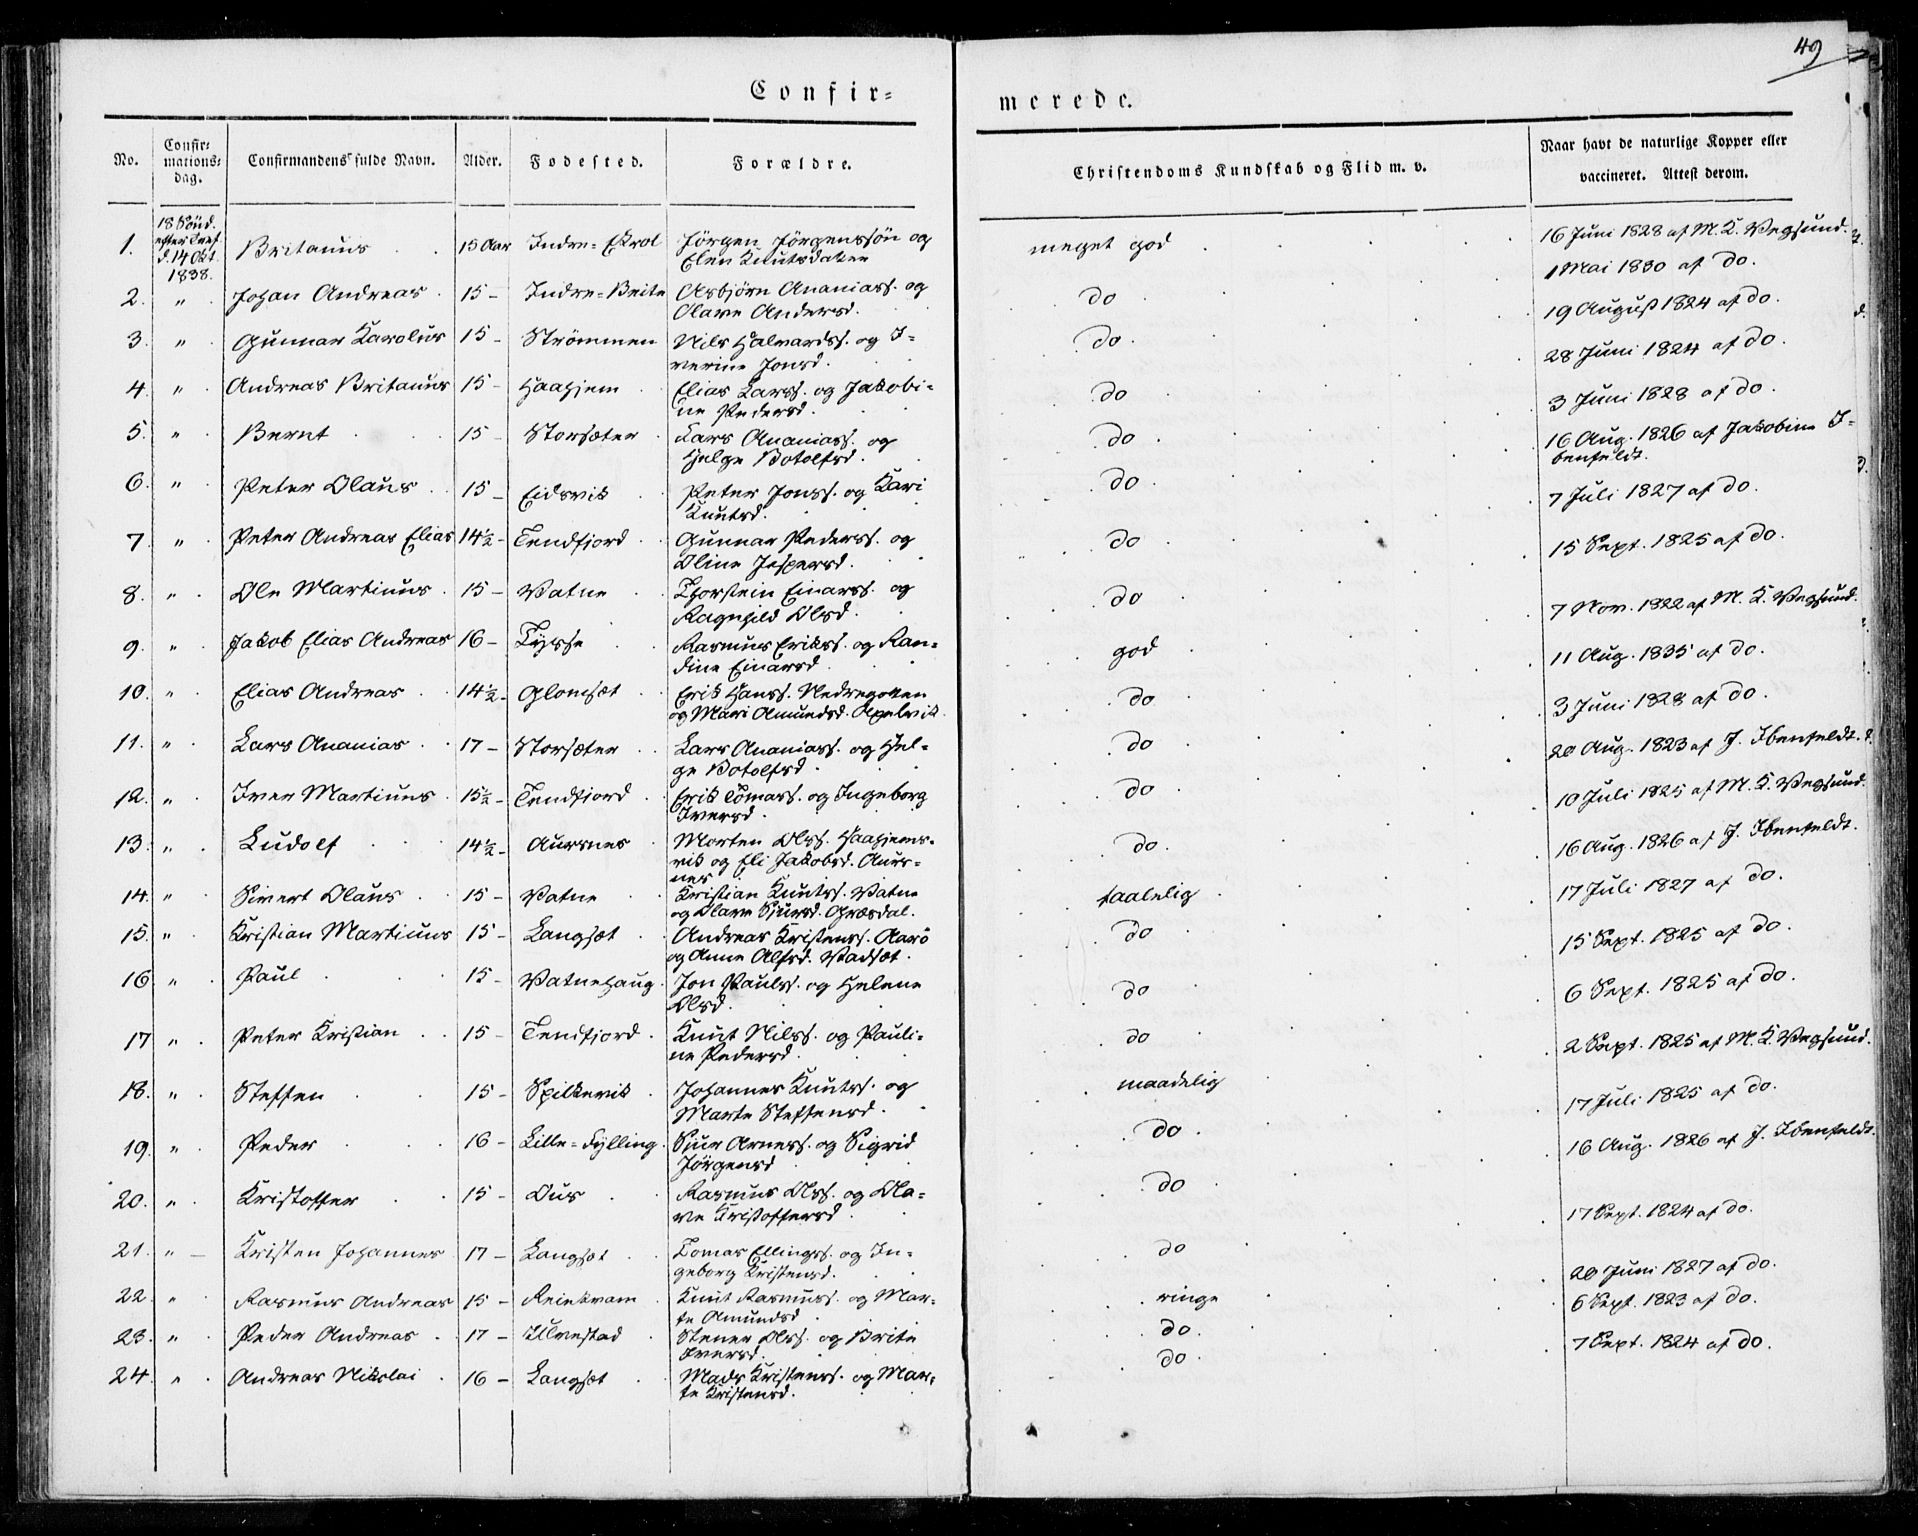 49
Confir= merede.
No. Confir=mations=dag. Confirmandens fulde Navn. Alder. Fodested. Forældre. Christendoms Kundskab og Flid m. v. Naar havt de naturlige Kopper eller vaccineret. Attest derom.
1. 18 Sönd. efter Tref. d. 14 Okt. 1838. Britanus 15 Aar Indre=Ekrol Jörgen Jörgenssön og Elen Knutsdatter meget god 16 Juni 1828 af M. K. Vegsund.
2. " Johan Andreas 15 - Indre=Beite Asbjörn Ananiass. og Olave Andersd. do 1 Mai 1830 af do.
3. " Gunnar Karolus 15 - Strömmen Nils Halvardss. og I=verine Jonsd. do 19 August 1824 af do.
4. " Andreas Britanus 15 - Haahjem Elias Larss. og Jakobi=ne Pedersd. do 28 Juni 1824 af do.
5. " Bernt 15 - Storsæter Lars Ananiass. og Helge Botolfsd. do 3 Juni 1828 af do.
6. " Peter Olaus 15 - Eidsvik Peter Jonss. og Kari Knutsd. do 16 Aug. 1826 af Jakobine I=benfeldt.
7. " Peter Andreas Elias 14½ - Tendfjord Gunnar Pederss. og Oline Jespersd. do 7 Juli 1827 af do.
8. " Ole Martinus 15 - Vatne Thorstein Einarss. og Ragnhild Olsd. do 15 Sept. 1825 af do.
9. " Jakob Elias Andreas 16 - Tyrse Rasmus Eriks. og Ran=dine Einarsd. god 7 Nov. 1822 af M. K. Vegsund.
10. " Elias Andreas 14½ - Glomsæt Erik Hanss. Nedregotten og Mari Amundsd. Apelvik. do 11 Aug. 1835 af do.
11. " Lars Ananias 17 - Storsæter Lars Ananiass. og Hel=ge Botolfsd. do 3 Juni 1828 af do.
12. " Iver Martinus 15½ - Tendfjord Erik Tomass. og Ingeborg Iversd. do 20 Aug. 1823 af J. Ibenfeldt.
13. " Ludolf 14½ - Aursnes Morten Olss. Haahjems=vik og Eli Jakobsd. Aurs=nes do 10 Juli 1825 af M. K. Vegsund.
14. " Sivert Olaus 15 - Vatne Kristian Knuts. Vatne og Olave Sjursd. Græsdal. taalelig 16 Aug. 1826 af J. Ibenfeldt.
15. " Kristian Martinus 15 - Langsæt Andreas Kristens. Aarö og Anne Alfsd. Vadsæt. do 17 Juli 1827 af do.
16. " Paul 15 - Vatnehaug Jon Paulss. og Helene Olsd. do 15 Sept. 1825 af do.
17. " Peter Kristian 15 - Tendfjord Knut Nilss. og Pauli=ne Pedersd. do 6 Sept. 1825 af do.
18. " Steffen 15 - Spilkevik Johannes Knuts. og Marte Steffensd. maadelig 2 Sept. 1825 af M. K. Vegsund.
19. " Peder 16 - Lille=Fylling Sjur Arness. og Sigrid Jörgensd do 17 Juli 1825 af do.
20. " Kristoffer 15 - Ous Rasmus Olss. og Ola=ve Kristoffersd. do 16 Aug. 1826 af J. Ibenfeldt.
21. " Kristen Johannes 17 - Langsæt Tomas Ellingss. og In=geborg Kristensd. do 17 Sept. 1824 af do.
22. " Rasmus Andreas 15 - Reinkvam Knut Rasmuss. og Mar=te Amundsd. ringe 20 Juni 1827 af do.
23. " Peder Andreas 17 - Ulvestad Stener Olss. og Brite Iversd. do 6 Sept. 1823 af do.
24. " Andreas Nikolai 16 - Langsæt Mads Kristens. og Mar=te Kristensd. do 7 Sept. 1824 af do.